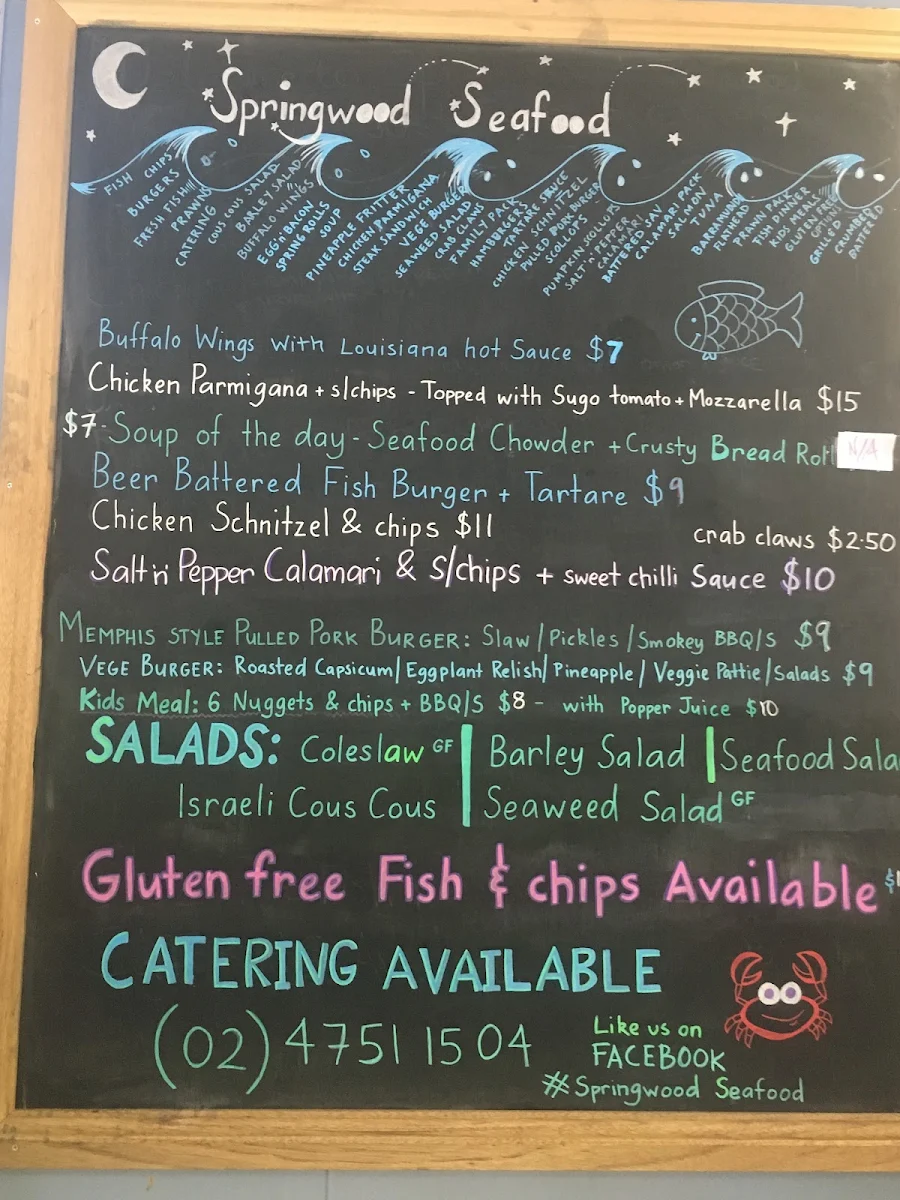 Springwood Seafood
FISH CHIPS
BURGERS
FRESH FISH!!!
PRAWNS
CATERING
COUS COUS SALAD
BARLEY SALAD
BUFFALO WINGS
EGG'n'BACON
SPRING ROLLS
SOUP
PINEAPPLE FRITTER
CHICKEN PARMIGANA
STEAK SANDWICH
VEGE BURGER
SEAWEED SALAD
CRAB CLAWS
FAMILY PACK
HAMBURGERS
TARTARE SAUCE
CHICKEN SCHNITZEL
PULLED PORK BURGER
SCOLLOPS
PUMPKIN SCOLLOPS
SALT'n'PEPPER
CALAMARI
BATTERED SAV
CALAMARI PACK
SALMON
TUNA
BARRAMUNDI
FLATHEAD
PRAWN PACK
FISH DINNER
KIDS MEALS!!!!
GLUTEN FREE
OPTIONS
GRILLED
CRUMBED
BATTERED
Buffalo Wings with Louisiana hot Sauce $7
Chicken Parmigana + s/chips - Topped with Sugo tomato + Mozzarella $15
$7 - Soup of the day - Seafood Chowder + Crusty Bread Roll N/A
Beer Battered Fish Burger + Tartare $9
Chicken Schnitzel & chips $11
crab claws $2.50
Salt 'n' Pepper Calamari & s/chips + sweet chilli Sauce $10
MEMPHIS STYLE PULLED PORK BURGER: Slaw / Pickles / Smokey BBQ/S $9
VEGE BURGER: Roasted Capsicum / Eggplant Relish / Pineapple / Veggie Pattie / Salads $9
Kids Meal: 6 Nuggets & chips + BBQ/S $8 - with Popper Juice $10
SALADS: Coleslaw GF | Barley Salad | Seafood Sala
Israeli Cous Cous | Seaweed Salad GF
Gluten free Fish & chips Available
CATERING AVAILABLE
(02) 4751 1504
Like us on
FACEBOOK
#Springwood Seafood